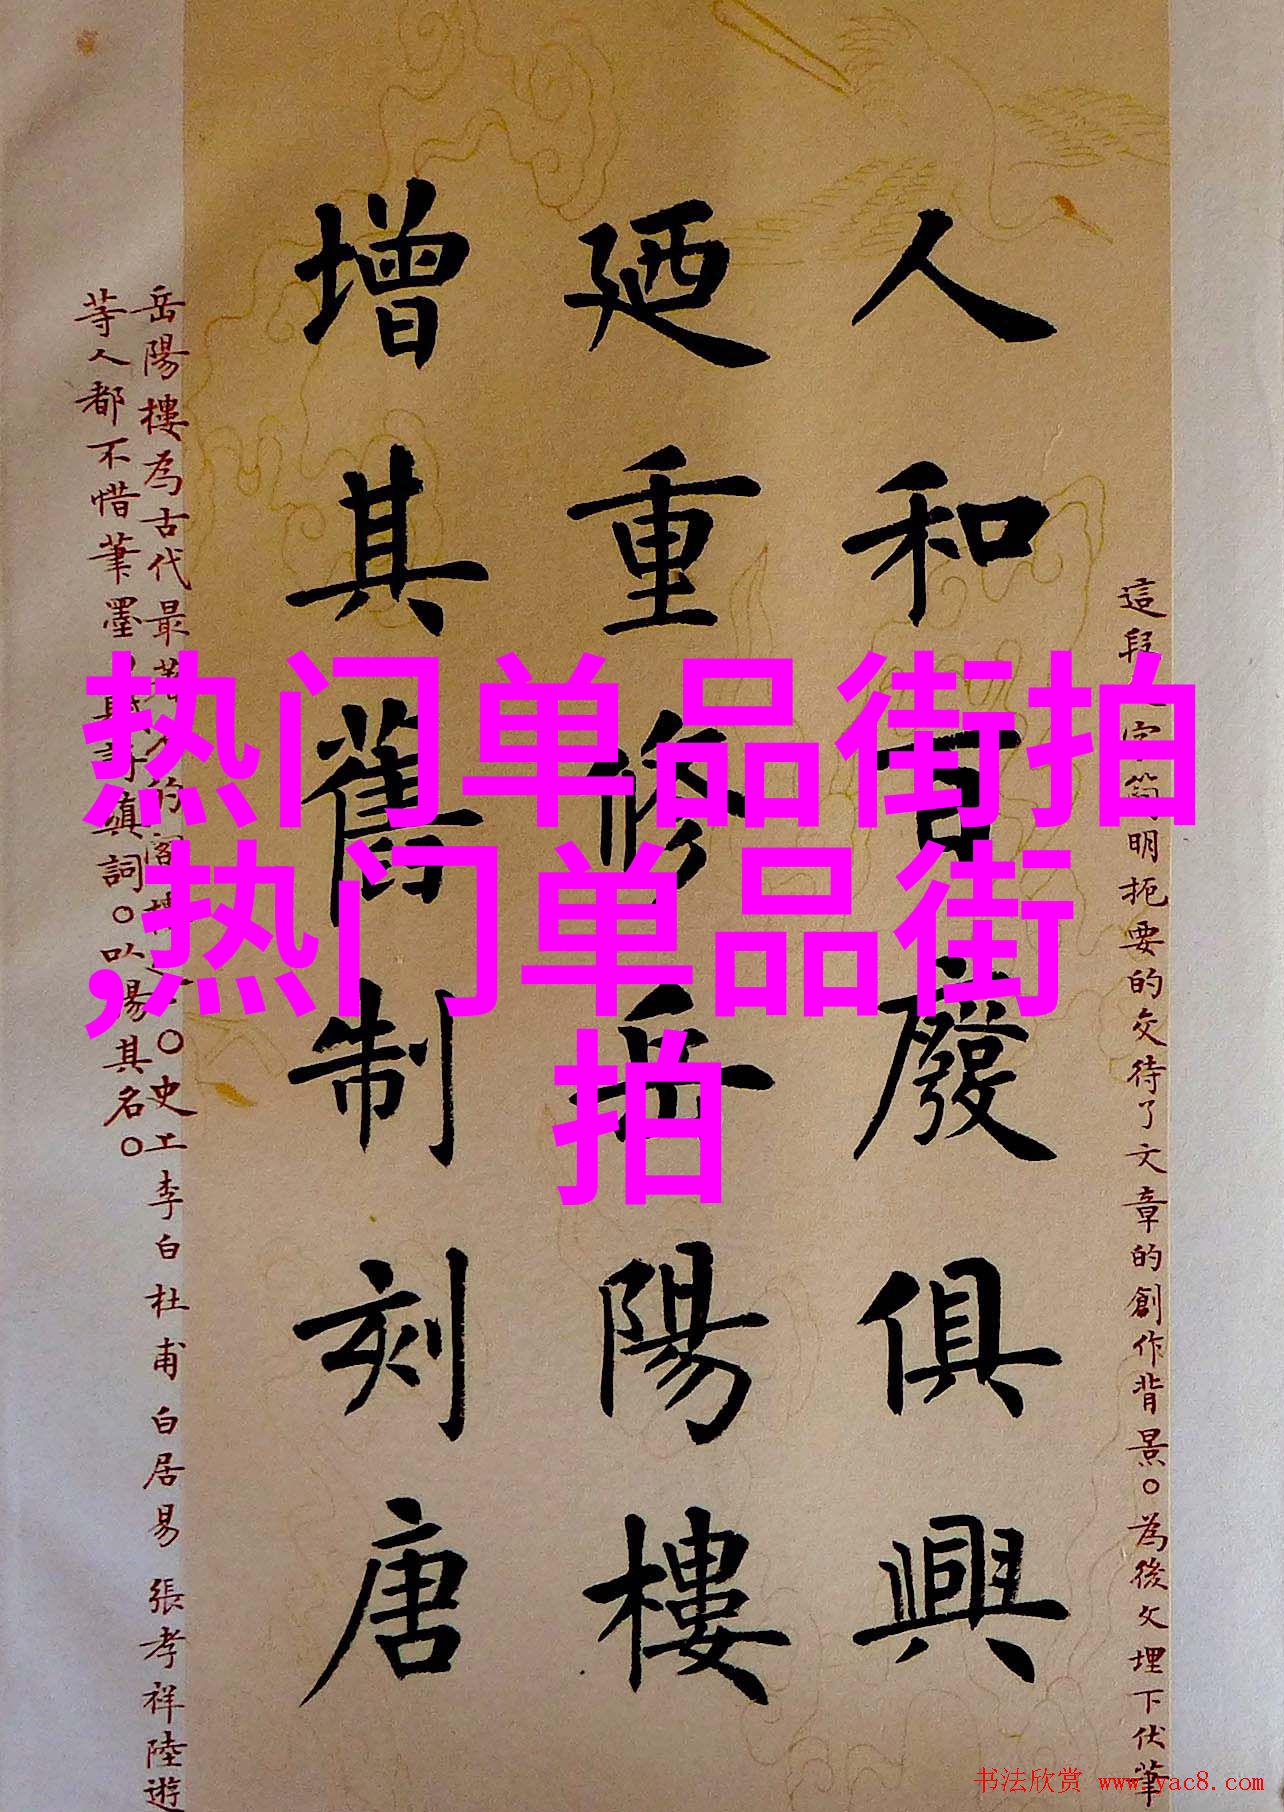 這段字簡明扼要的交待了文章的創作背景。為後文埋下伏筆
人和百廢俱興
廼重修岳陽樓
增其舊制刻唐
岳陽樓為古代最的閣。史工李白杜甫白居易張孝祥陸遊
等人都不惜筆墨詩填詞。以揚其名。
热门单品街拍
,热门单品街
拍
书法欣赏 www.yac8.com